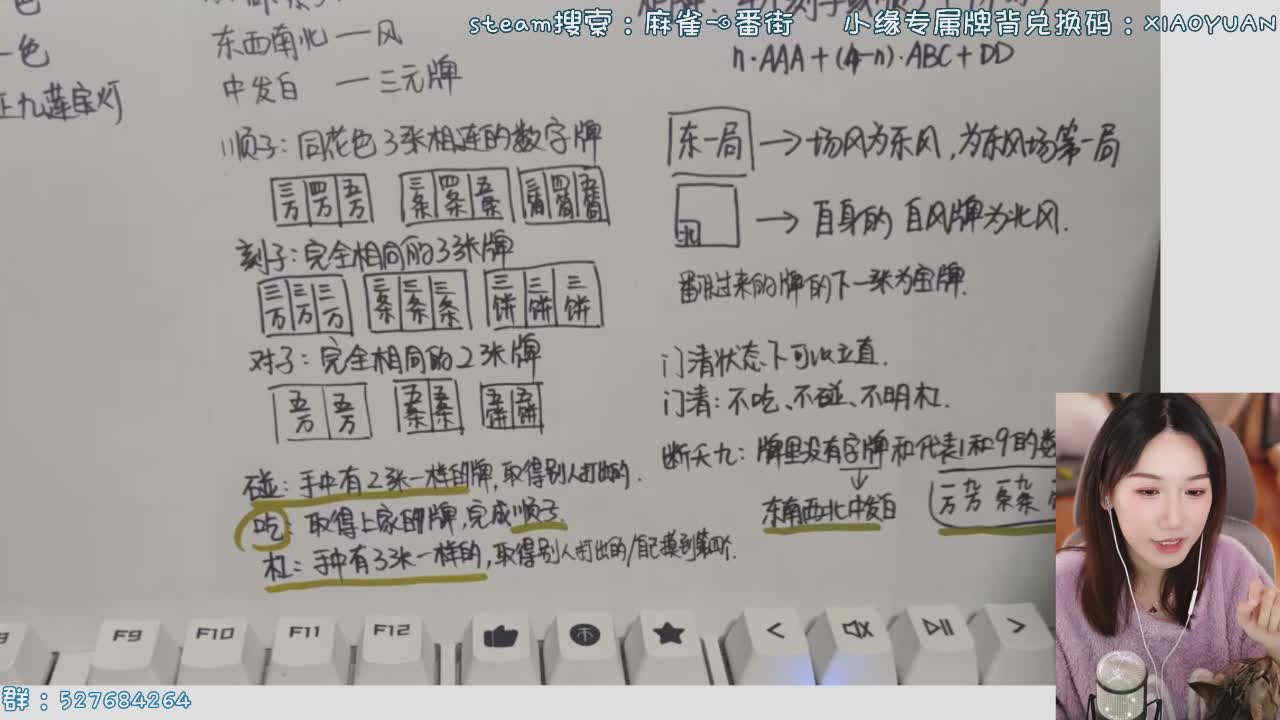 steam搜索：麻雀一番街 小缘专属牌背兑换码：XIAOYUAN
色
一色
正九莲宝灯
东西南北 — 风
中发白 — 三元牌
顺子：同花色3张相连的数字牌
三万 四万 五万 三条 四条 五条 三筒 四筒 五筒
刻子：完全相同的3张牌
三万 三万 三万 三条 三条 三条 三饼 三饼 三饼
对子：完全相同的2张牌
五万 五万 五条 五条 五饼 五饼
碰：手中有2张一样的牌，取得别人打出的.
吃：取得上家的牌，完成顺子
杠：手中有3张一样的，取得别人打出的/自己摸到第四个.
n·AAA+(4-n)·ABC+DD
东一局 → 场风为东风，为东风场第一局
北 → 自身的 自风牌为北风.
翻过来的牌的下一张为宝牌.
门清状态下可以立直.
门清：不吃、不碰、不明杠.
断幺九：牌里没有字牌和代表1和9的数
东南西北中发白
一万 九万 一条 九条
F9 F10 F11 F12
群：527684264